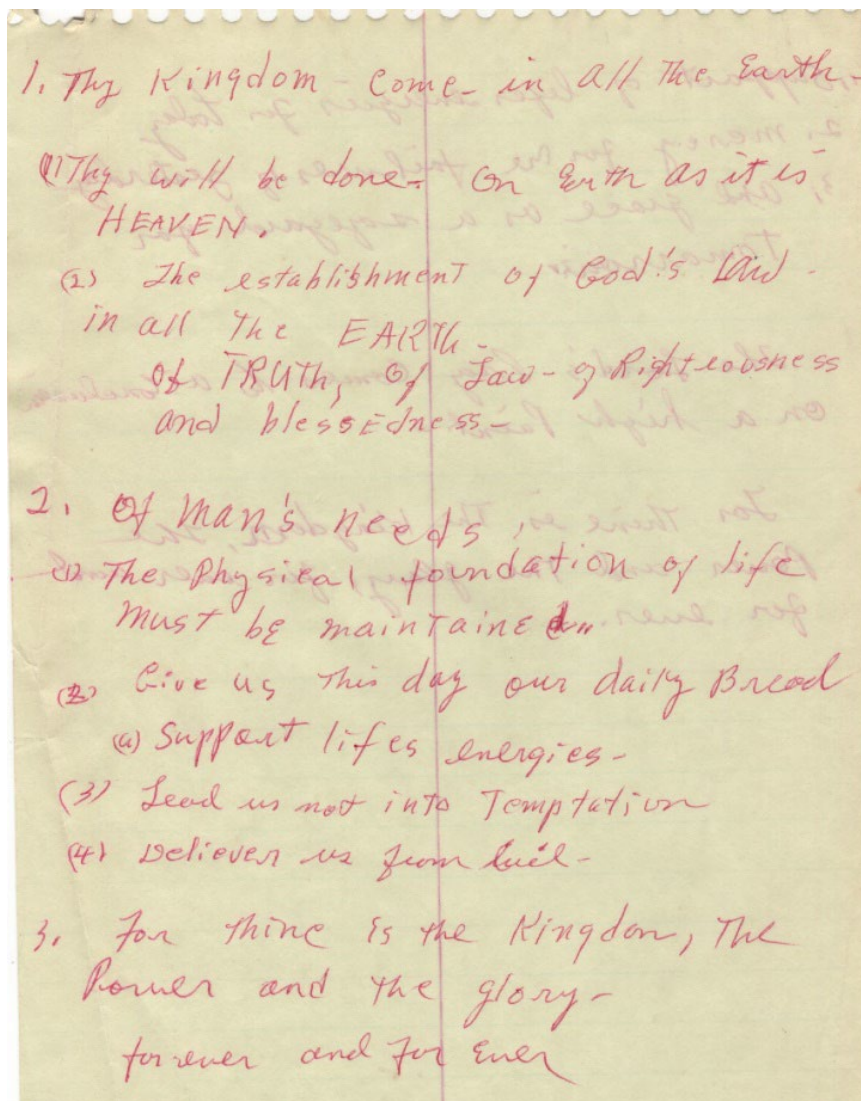 1. Thy Kingdom - Come - in all The Earth -
(1) Thy will be done - On Earth as it is
HEAVEN.
(2) The establishment of God's Law -
in all The EARTh -
Of TRUTh, Of Law - of Righteousness
and blessEdness -
2. Of Man's needs,
(1) The Physical foundation of life
Must be mainTained..
(2) Give us This day our daily Bread
(a) Support lifes energies -
(3) Lead us not into Temptation
(4) Deliever us from Evil -
3. For Thine is the Kingdom, The
Power and the glory -
forever and For Ever